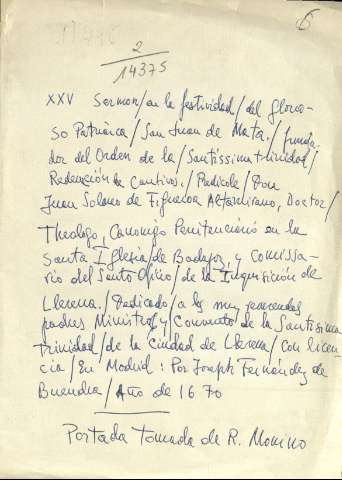 6
2
14375
XXV Sermon/en la festividad/del glorio-
so Patriarca/San Juan de Mata./funda-
dor del Orden de la/Santissima trinidad/
Redención de Cautivos./Predicole/Don
Juan Solano de Figueroa Altamirano, Doctor/
Theologo, Canonigo Penitenciario en la
Santa Iglesia de Badajoz, y Comissa-
rio del Santo Oficio/de la Inquisición de
Llerena./Dedicado/a los muy reverendos
padres Ministro y Convento de la Santissima
trinidad/de la ciudad de Llerena/con licen-
cia/En Madrid: Por Joseph Fernández de
Buendia/Año de 1670
Portada tomada de R. Moñino